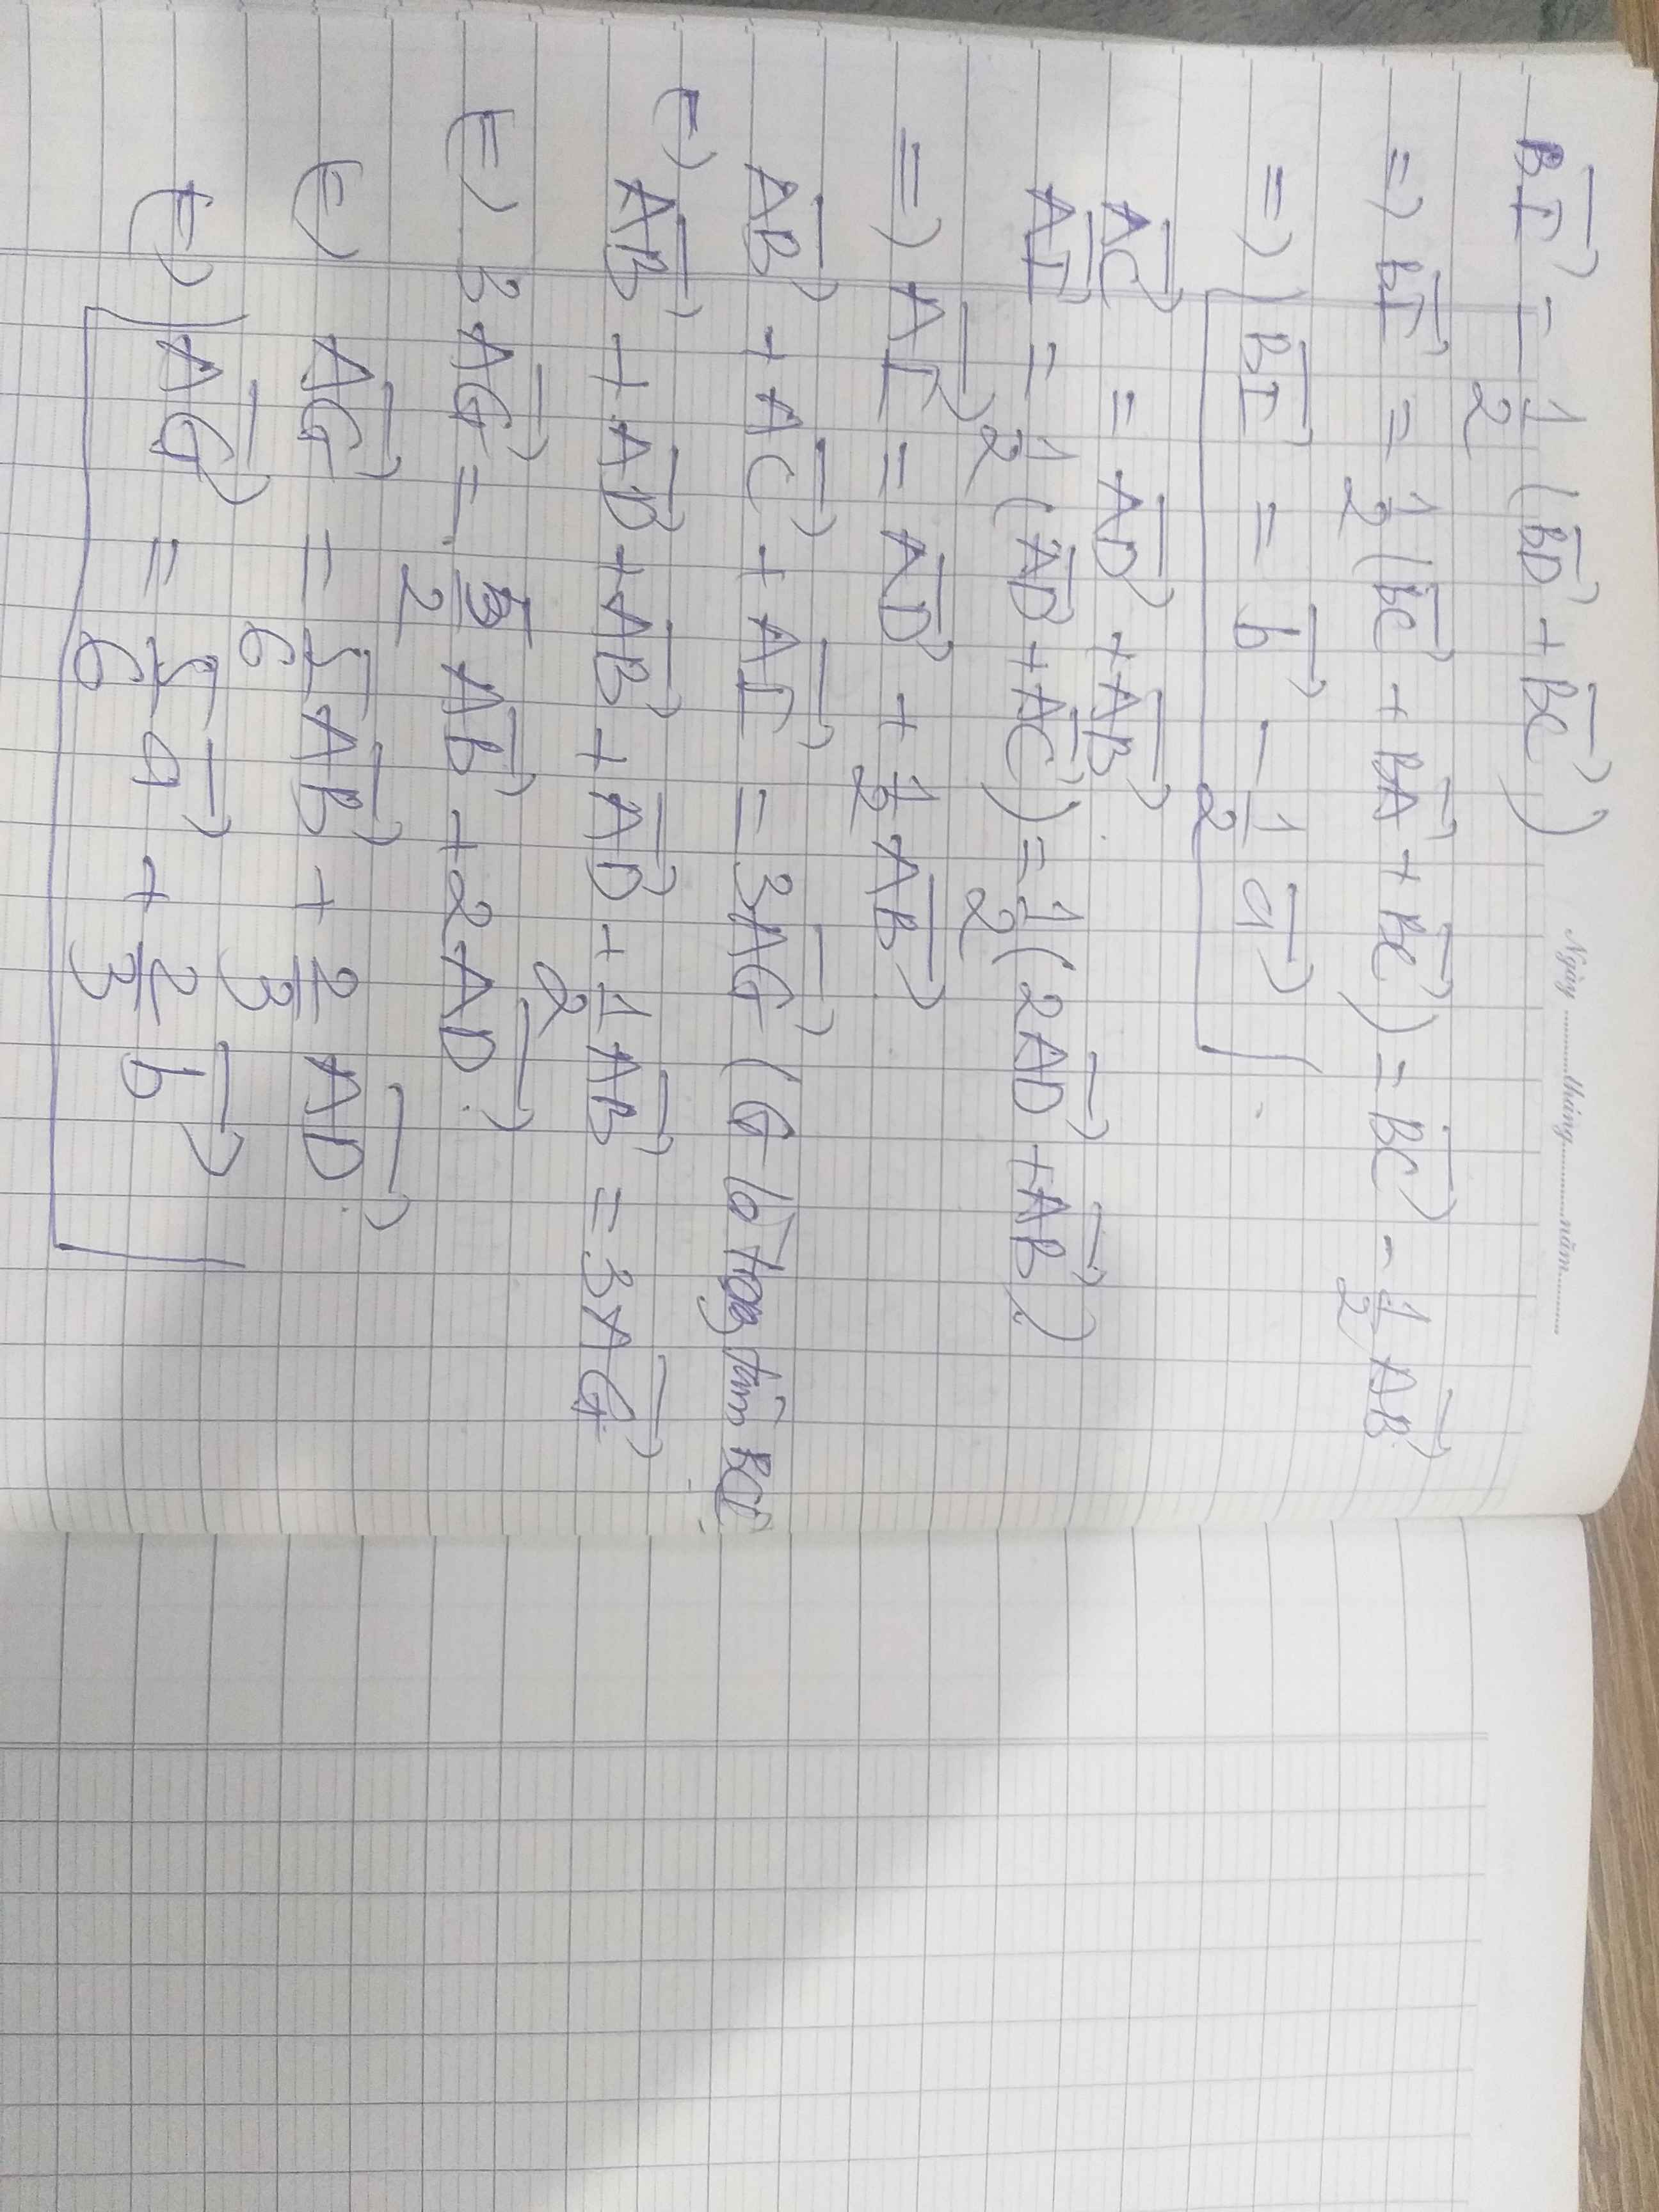 Ngày ............tháng............năm............
BI→ = 1/2 (BD→ + BC→)
=> BI→ = 1/2 (BC→ + BA→ + BC→) = BC→ - 1/2 AB→
=> BI→ = b→ - 1/2 a→
AC→ = AD→ + AB→.
AI→ = 1/2 (AD→ + AC→) = 1/2 (2AD→ + AB→)
=> AI→ = AD→ + 1/2 AB→
AB→ + AC→ + AI→ = 3AG→ (G là trọng tâm BCI
<=> AB→ + AD→ + AB→ + AD→ + 1/2 AB→ = 3AG→
<=> 3AG→ = 5/2 AB→ + 2AD→
<=> AG→ = 5/6 AB→ + 2/3 AD→
<=> AG→ = 5/6 a→ + 2/3 b→